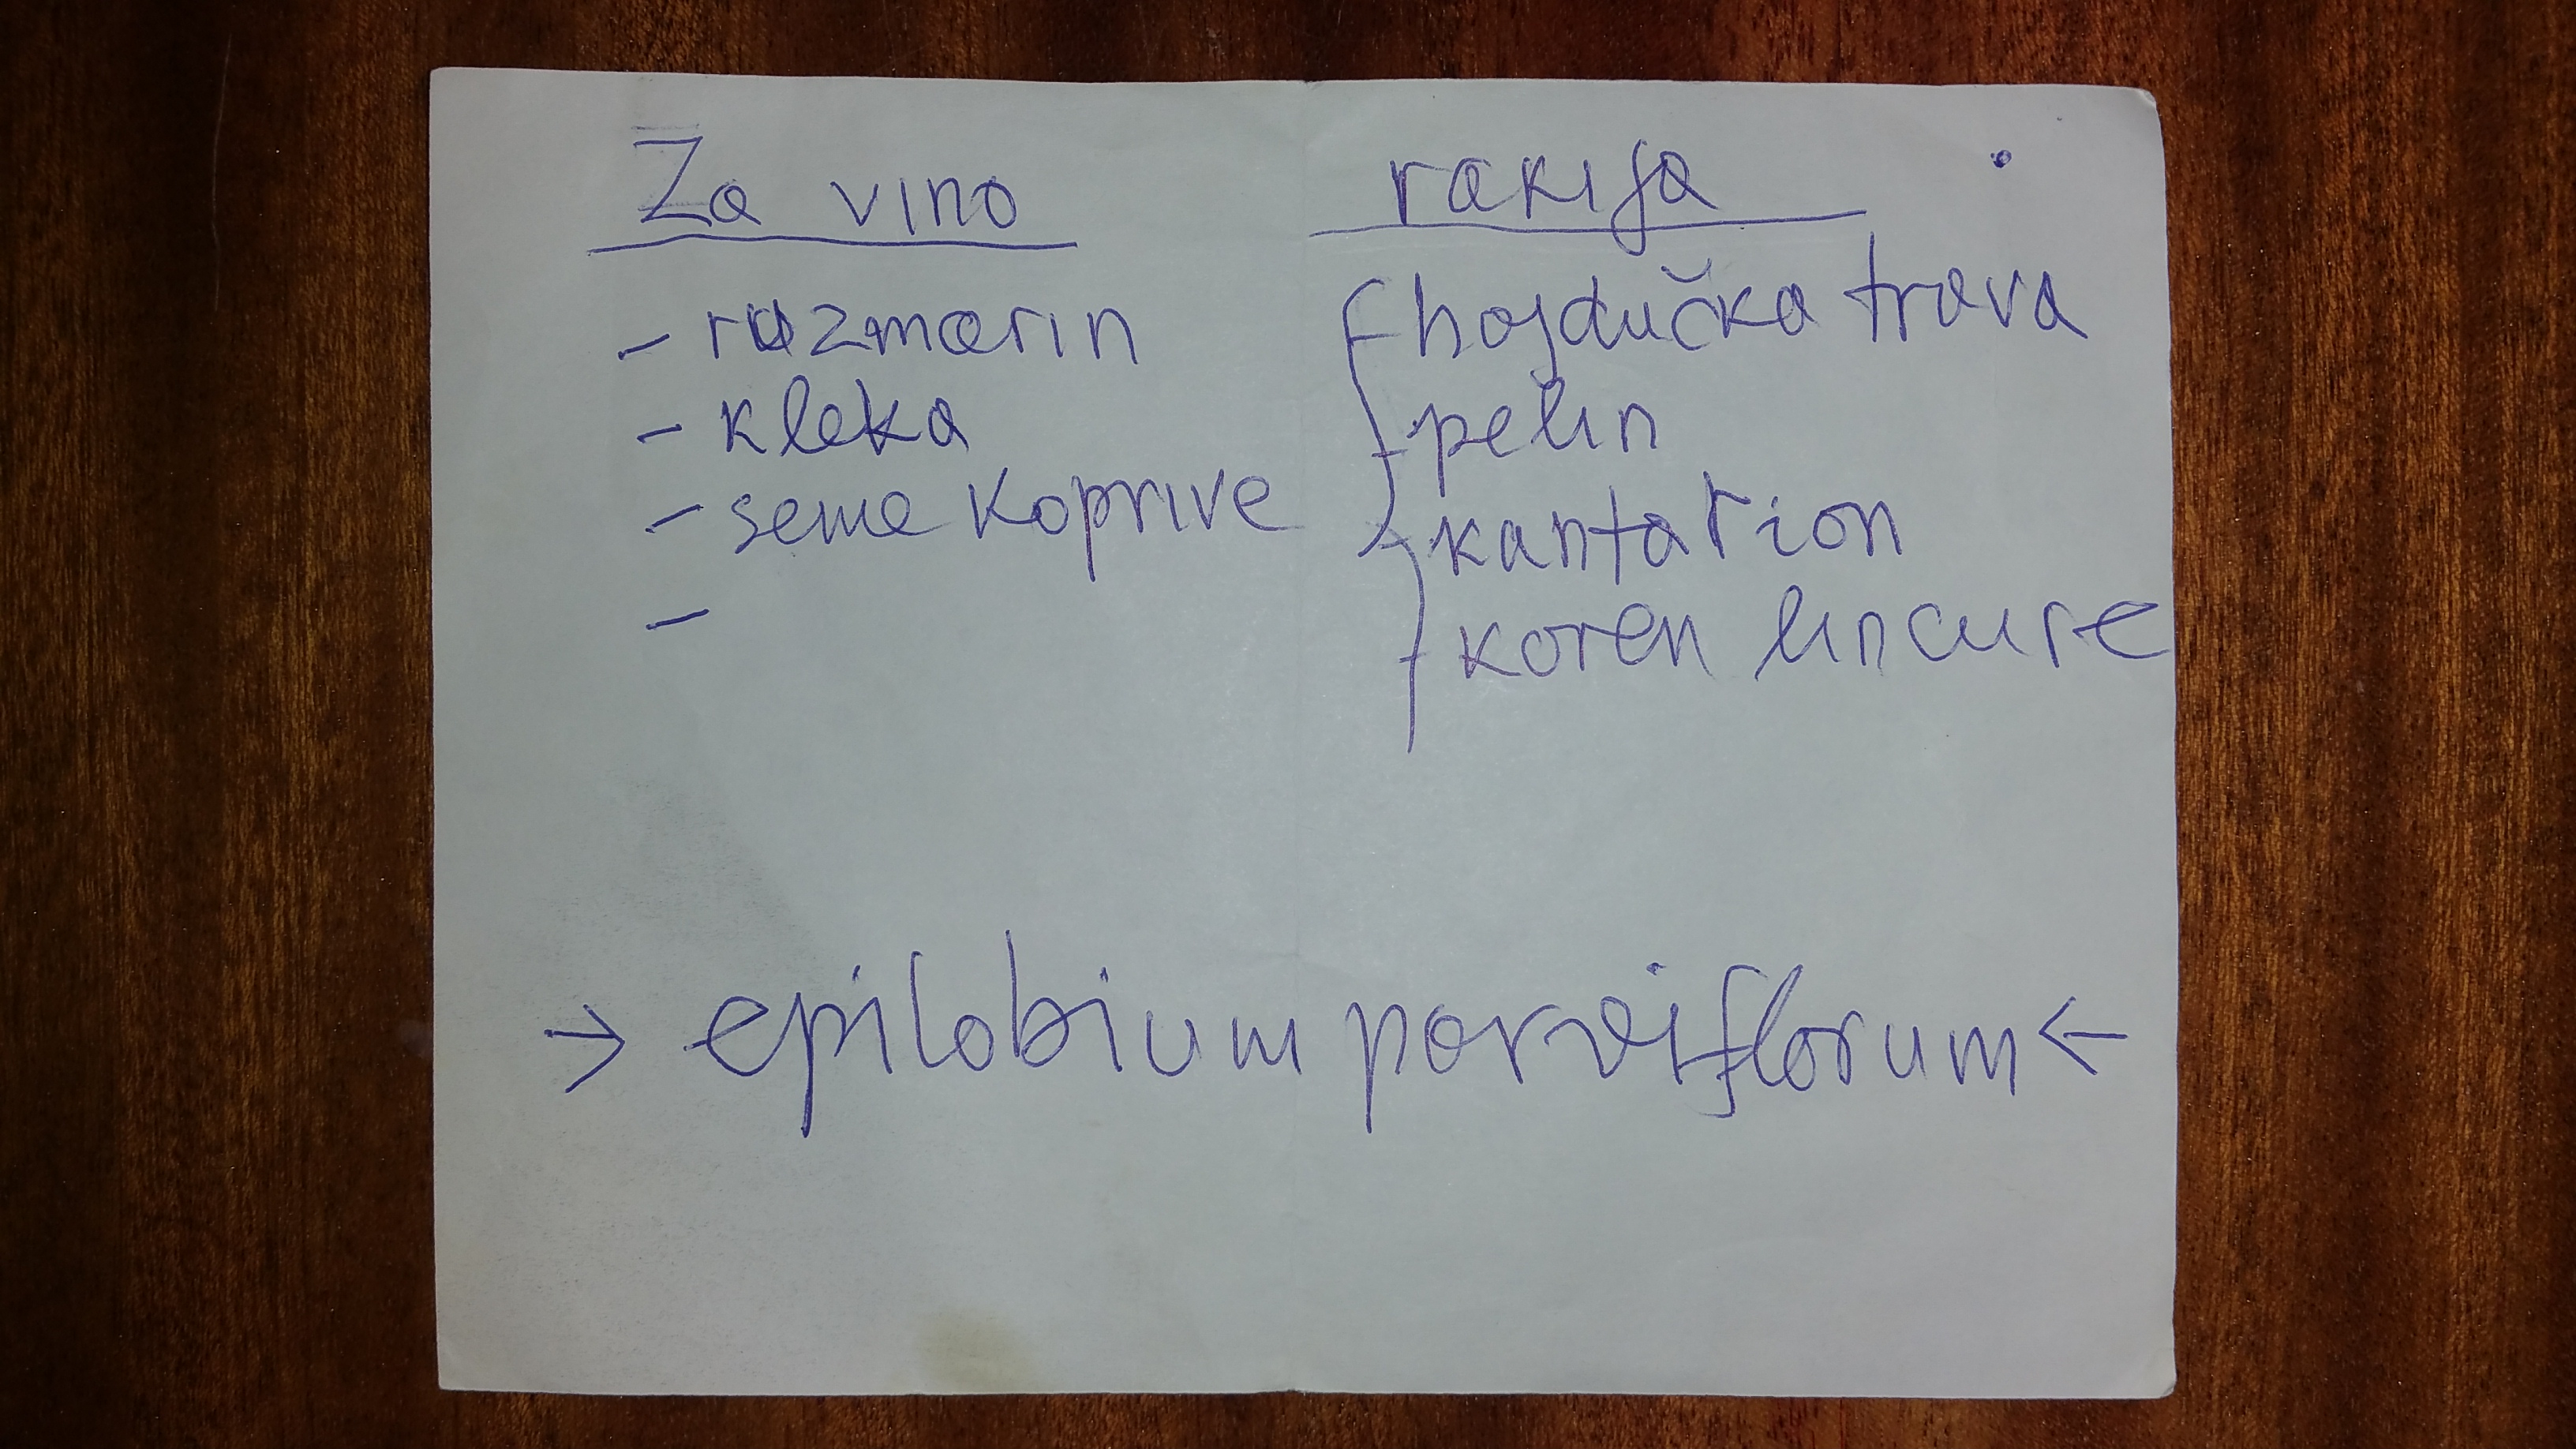 Za vino
- ruzmarin
- kleka
- seme koprive
-
rakija
hajdučka trava
pelin
kantarion
koren lincure
→ epilobium parviflorum ←